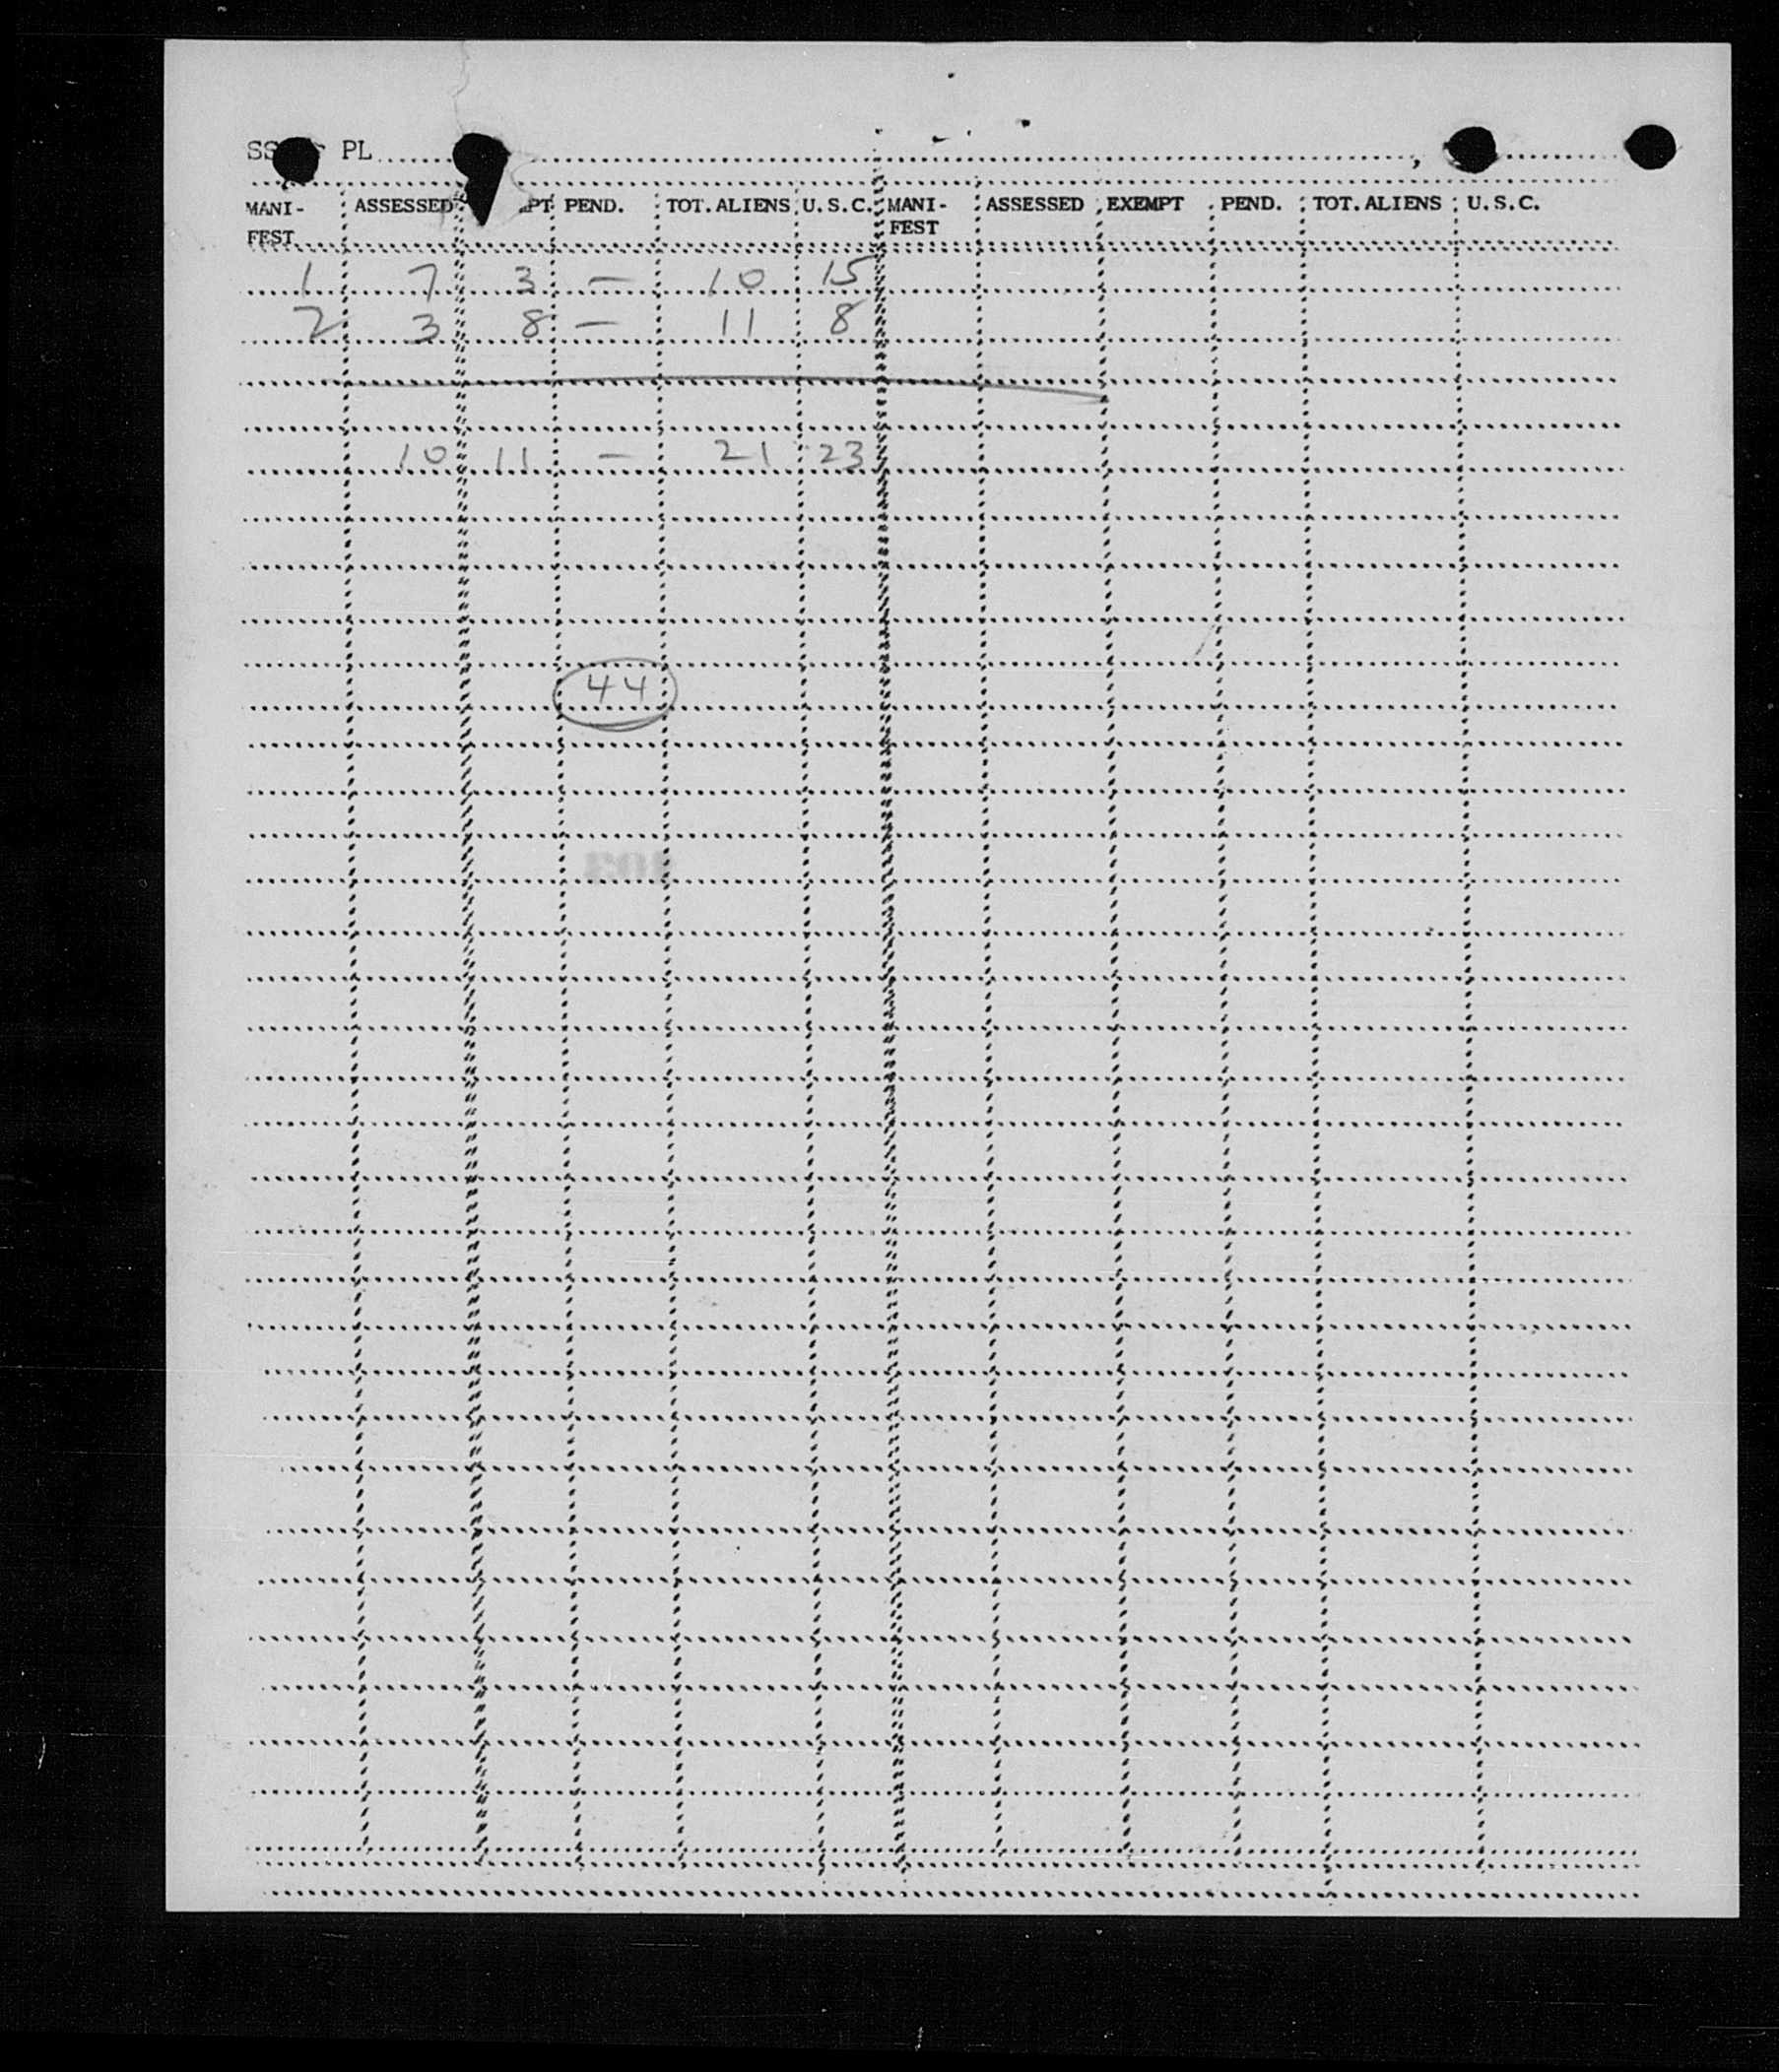 PL
MANI- ASSESSED PEND. TOT. ALIENS U.S.C. MANI- ASSESSED EXEMPT PEND. TOT. ALIENS U.S.C.
FEST FEST
1 7 3 — 10 15
2 3 8 — 11 8
10 11 — 21 23
44